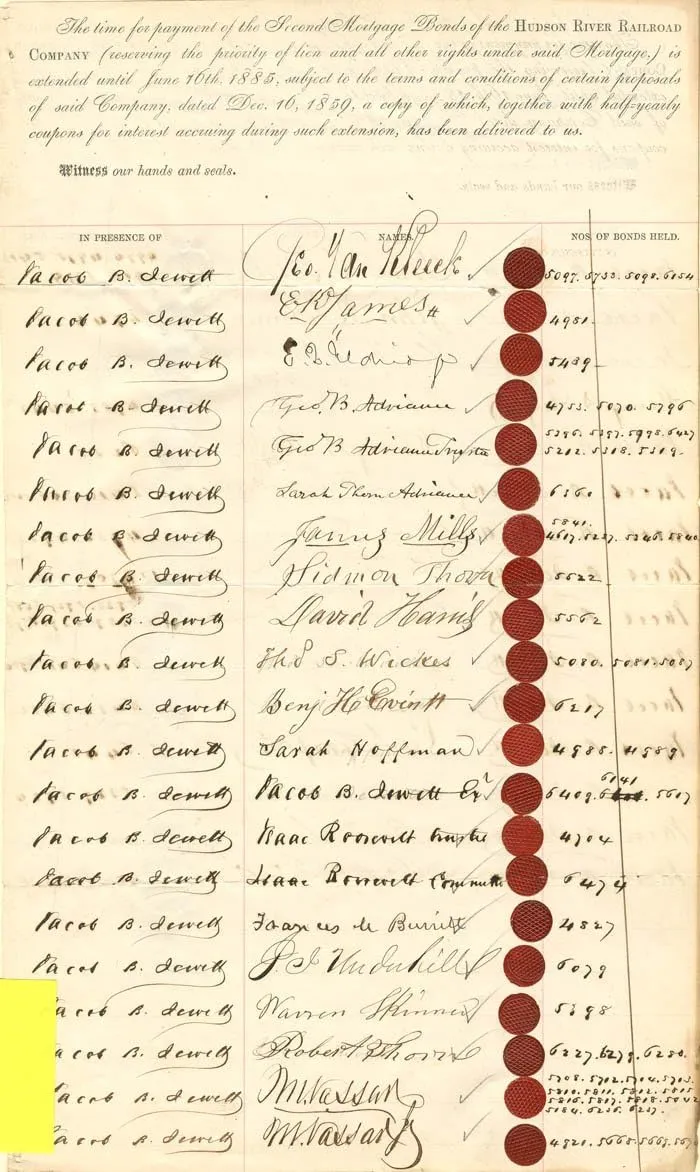 The time for payment of the Second Mortgage Bonds of the HUDSON RIVER RAILROAD
COMPANY (reserving the priority of lien and all other rights under said Mortgage,) is
extended until June 16th, 1885, subject to the terms and conditions of certain proposals
of said Company, dated Dec. 16, 1859, a copy of which, together with half-yearly
coupons for interest accruing during such extension, has been delivered to us.
Witness our hands and seals.
IN PRESENCE OF NAMES. NOS. OF BONDS HELD.
Jacob B. Jewett Geo. Van Kleeck 5097. 5733. 5098. 6154
Jacob B. Jewett E K James 4981.
Jacob B. Jewett 5489
Jacob B. Jewett Geo. B. Adriance 4753. 5070. 5796
Jacob B. Jewett Geo B Adriance Trustee 5212. 5318. 5319.
Jacob B. Jewett Sarah Thorn Adriance 6360
5841.
Jacob B. Jewett James Mills
Jacob B. Jewett Sidmon Thorn 5522
Jacob B. Jewett David Harris 5562
Jacob B. Jewett Thos S. Wickes 5080. 5081. 5087
Jacob B. Jewett Benj H 6217
Jacob B. Jewett Sarah Hoffman 4988. 4989
6141
Jacob B. Jewett Jacob B. Jewett Exr 6409. 5607
Jacob B. Jewett Isaac Roosevelt trustee 4704
Jacob B. Jewett Isaac Roosevelt Committee 6474
Jacob B. Jewett Frances 4827
Jacob B. Jewett Underhill 6079
Jacob B. Jewett Warren Skinner 5398
Jacob B. Jewett Robert Thorn 6227. 6279. 6280.
5708. 5712. 5704. 5703.
5810. 5811. 5812. 5815
Jacob B. Jewett M. Vassar 5816. 5817. 5818.
5184. 6256. 6257.
Jacob B. Jewett M. Vassar Jr 4821. 5668. 5669.